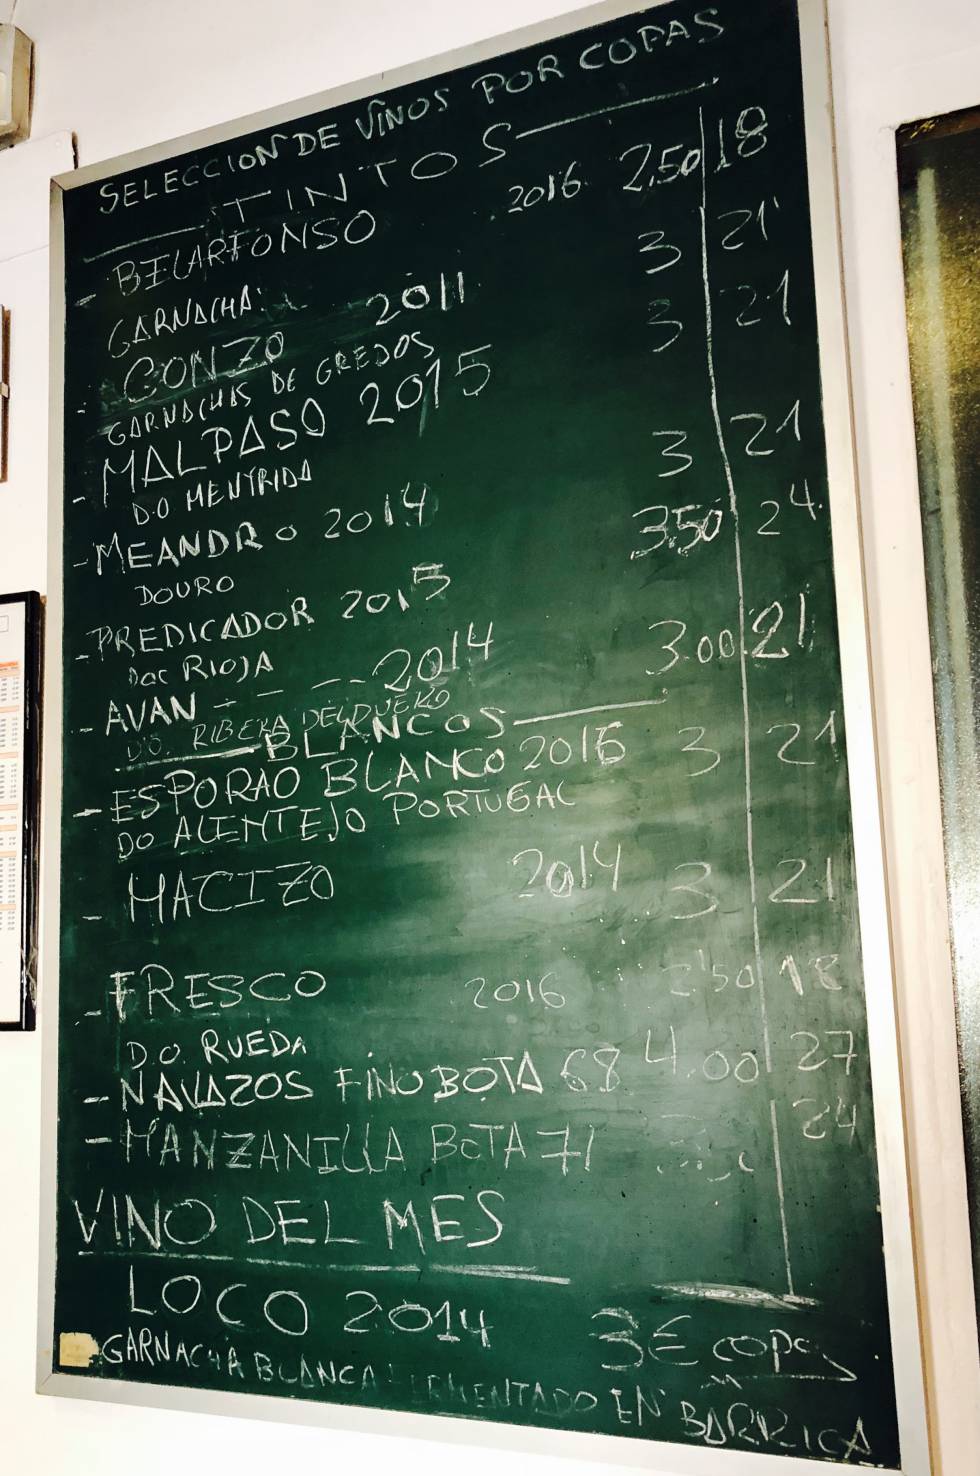 SELECCION DE VINOS POR COPAS
TINTOS
- BILARFONSO 2016 2,50 18
GARNACHA
- GONZO 2011 3 21
GARNACHAS DE GREDOS
- MALPASO 2015 3 21
D.O MENTRIDA
- MEANDRO 2014 3 21
DOURO
- PREDICADOR 2015 3.50 24
DOC RIOJA
- AVAN - - - - 2014 3.00 21
D.O. RIBERA DEL DUERO
BLANCOS
- ESPORAO BLANCO 2015 3 21
DO ALENTEJO PORTUGAL
- MACIZO 2014 3 21
- FRESCO 2016 2'50 18
D.O. RUEDA
- NAVAZOS FINO BOTA 68 4.00 27
- MANZANILLA BOTA 71 24
VINO DEL MES
LOCO 2014 3€ copa
GARNACHA BLANCA FERMENTADO EN BARRICA